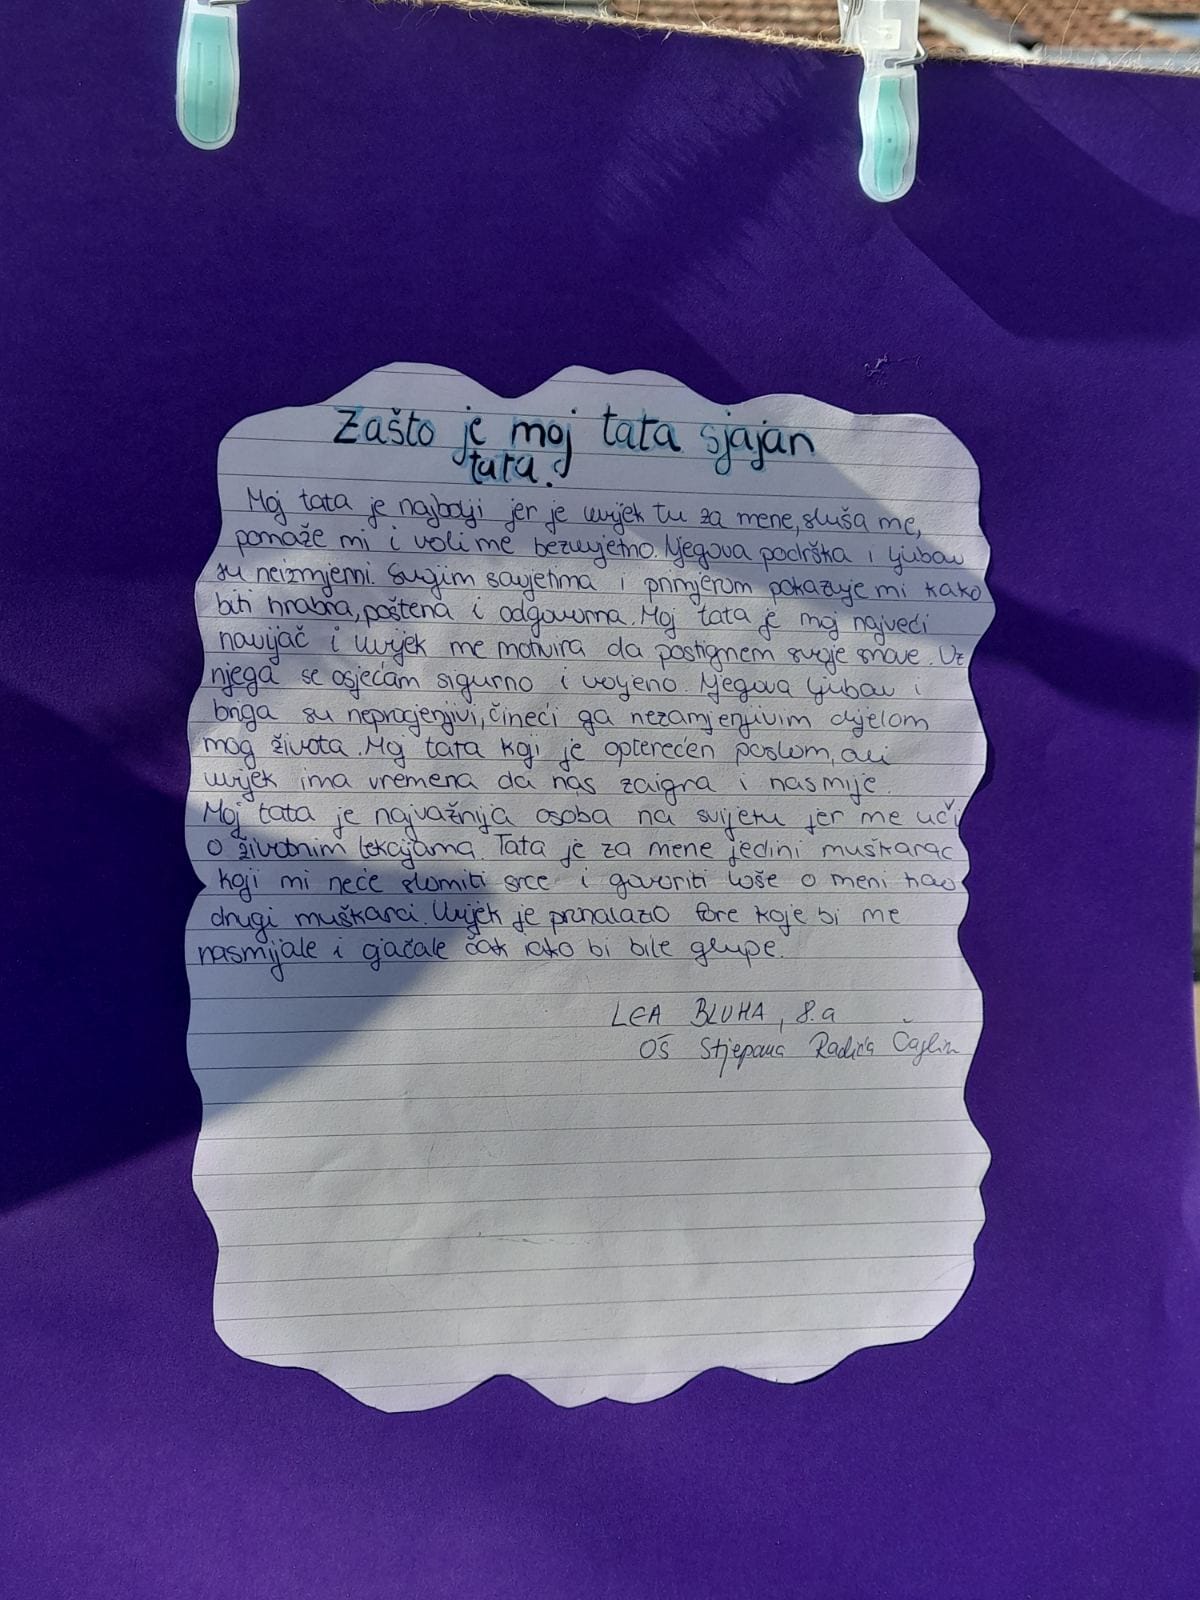 Zašto je moj tata sjajan
tata?
Moj tata je najbolji jer je uvijek tu za mene, sluša me,
pomaže mi i voli me bezuvjetno. Njegova podrška i ljubav
su neizmjerni. Svojim savjetima i primjerom pokazuje mi kako
biti hrabra, poštena i odgovorna. Moj tata je moj najveći
navijač i uvijek me motivira da postignem svoje snove. Uz
njega se osjećam sigurno i voljeno. Njegova ljubav i
briga su neprocjenjivi, čineći ga nezamjenjivim dijelom
mog života. Moj tata koji je opterećen poslom, ali
uvijek ima vremena da nas zaigra i nasmije.
Moj tata je najvažnija osoba na svijetu jer me uči
o životnim lekcijama. Tata je za mene jedini muškarac
koji mi neće slomiti srce i govoriti loše o meni kao
drugi muškarci. Uvijek je pronalazio fore koje bi me
nasmijale i ojačale čak iako bi bile glupe.
LEA BLUHA, 8.a
OŠ Stjepana Radića Čaglin